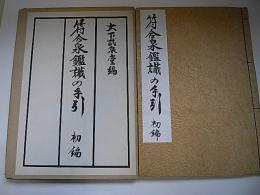 符合泉鑑識の手引
初編
符合泉鑑識の手引
初編